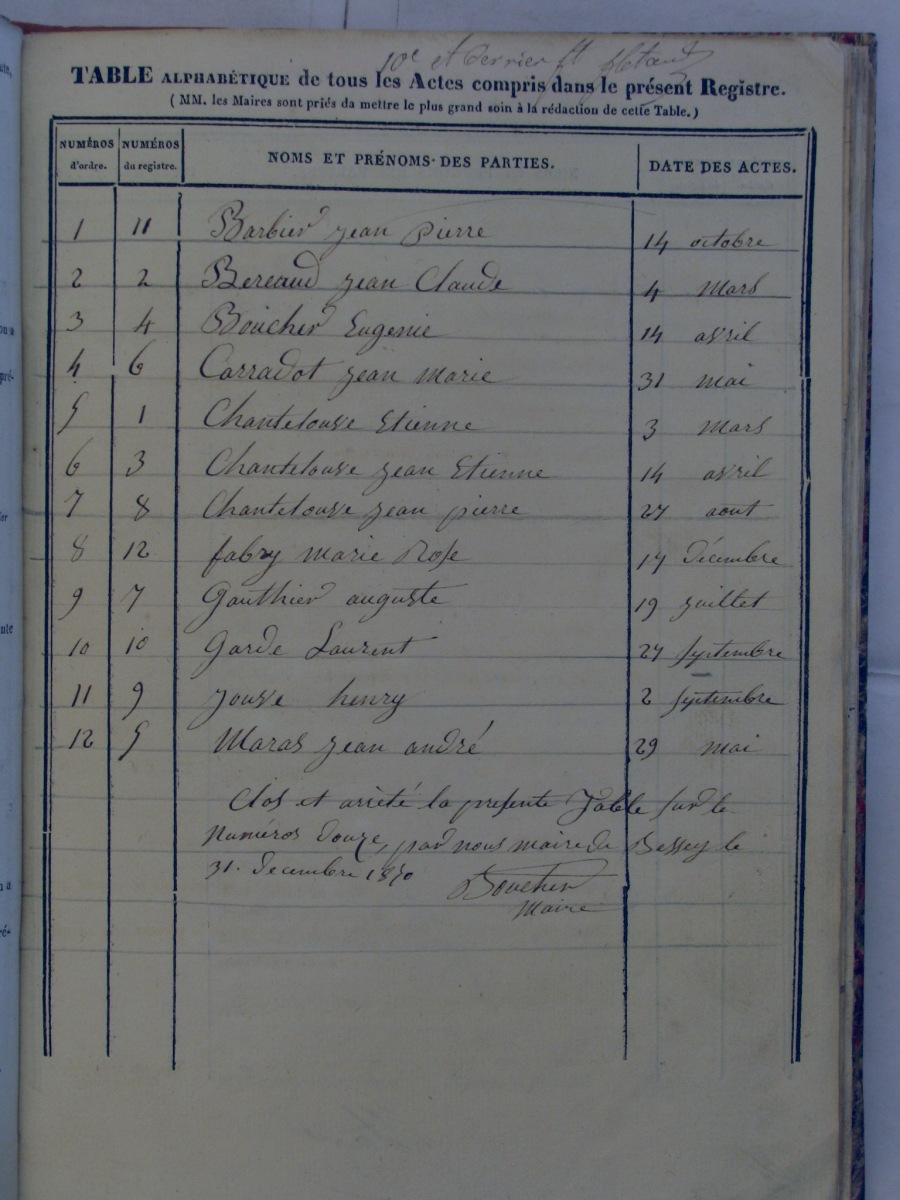 10e et Dernier ft
TABLE ALPHABÉTIQUE de tous les Actes compris dans le présent Registre.
( MM. les Maires sont priés da mettre le plus grand soin à la rédaction de cette Table. )
NUMÉROS d'ordre. NUMÉROS du registre. NOMS ET PRÉNOMS DES PARTIES. DATE DES ACTES.
1 11 Barbier jean pierre 14 octobre
2 2 Bereaud jean Claude 4 Mars
3 4 Boucher Eugenie 14 avril
4 6 Carradot jean Marie 31 mai
5 1 Chantelouve Etienne 3 Mars
6 3 Chantelouve jean Etienne 14 avril
7 8 Chantelouve jean pierre 27 aout
8 12 fabry marie Rose 14 Décembre
9 7 Gauthier auguste 19 juillet
10 10 Garde Laurent 27 septembre
11 9 Jouve henry 2 septembre
12 5 Maras jean andré 29 mai
Clos et arrêté la presente Table sur le
Numéros Douze, par nous maire de Bessey le
31. Decembre 1850
Boucher
Maire